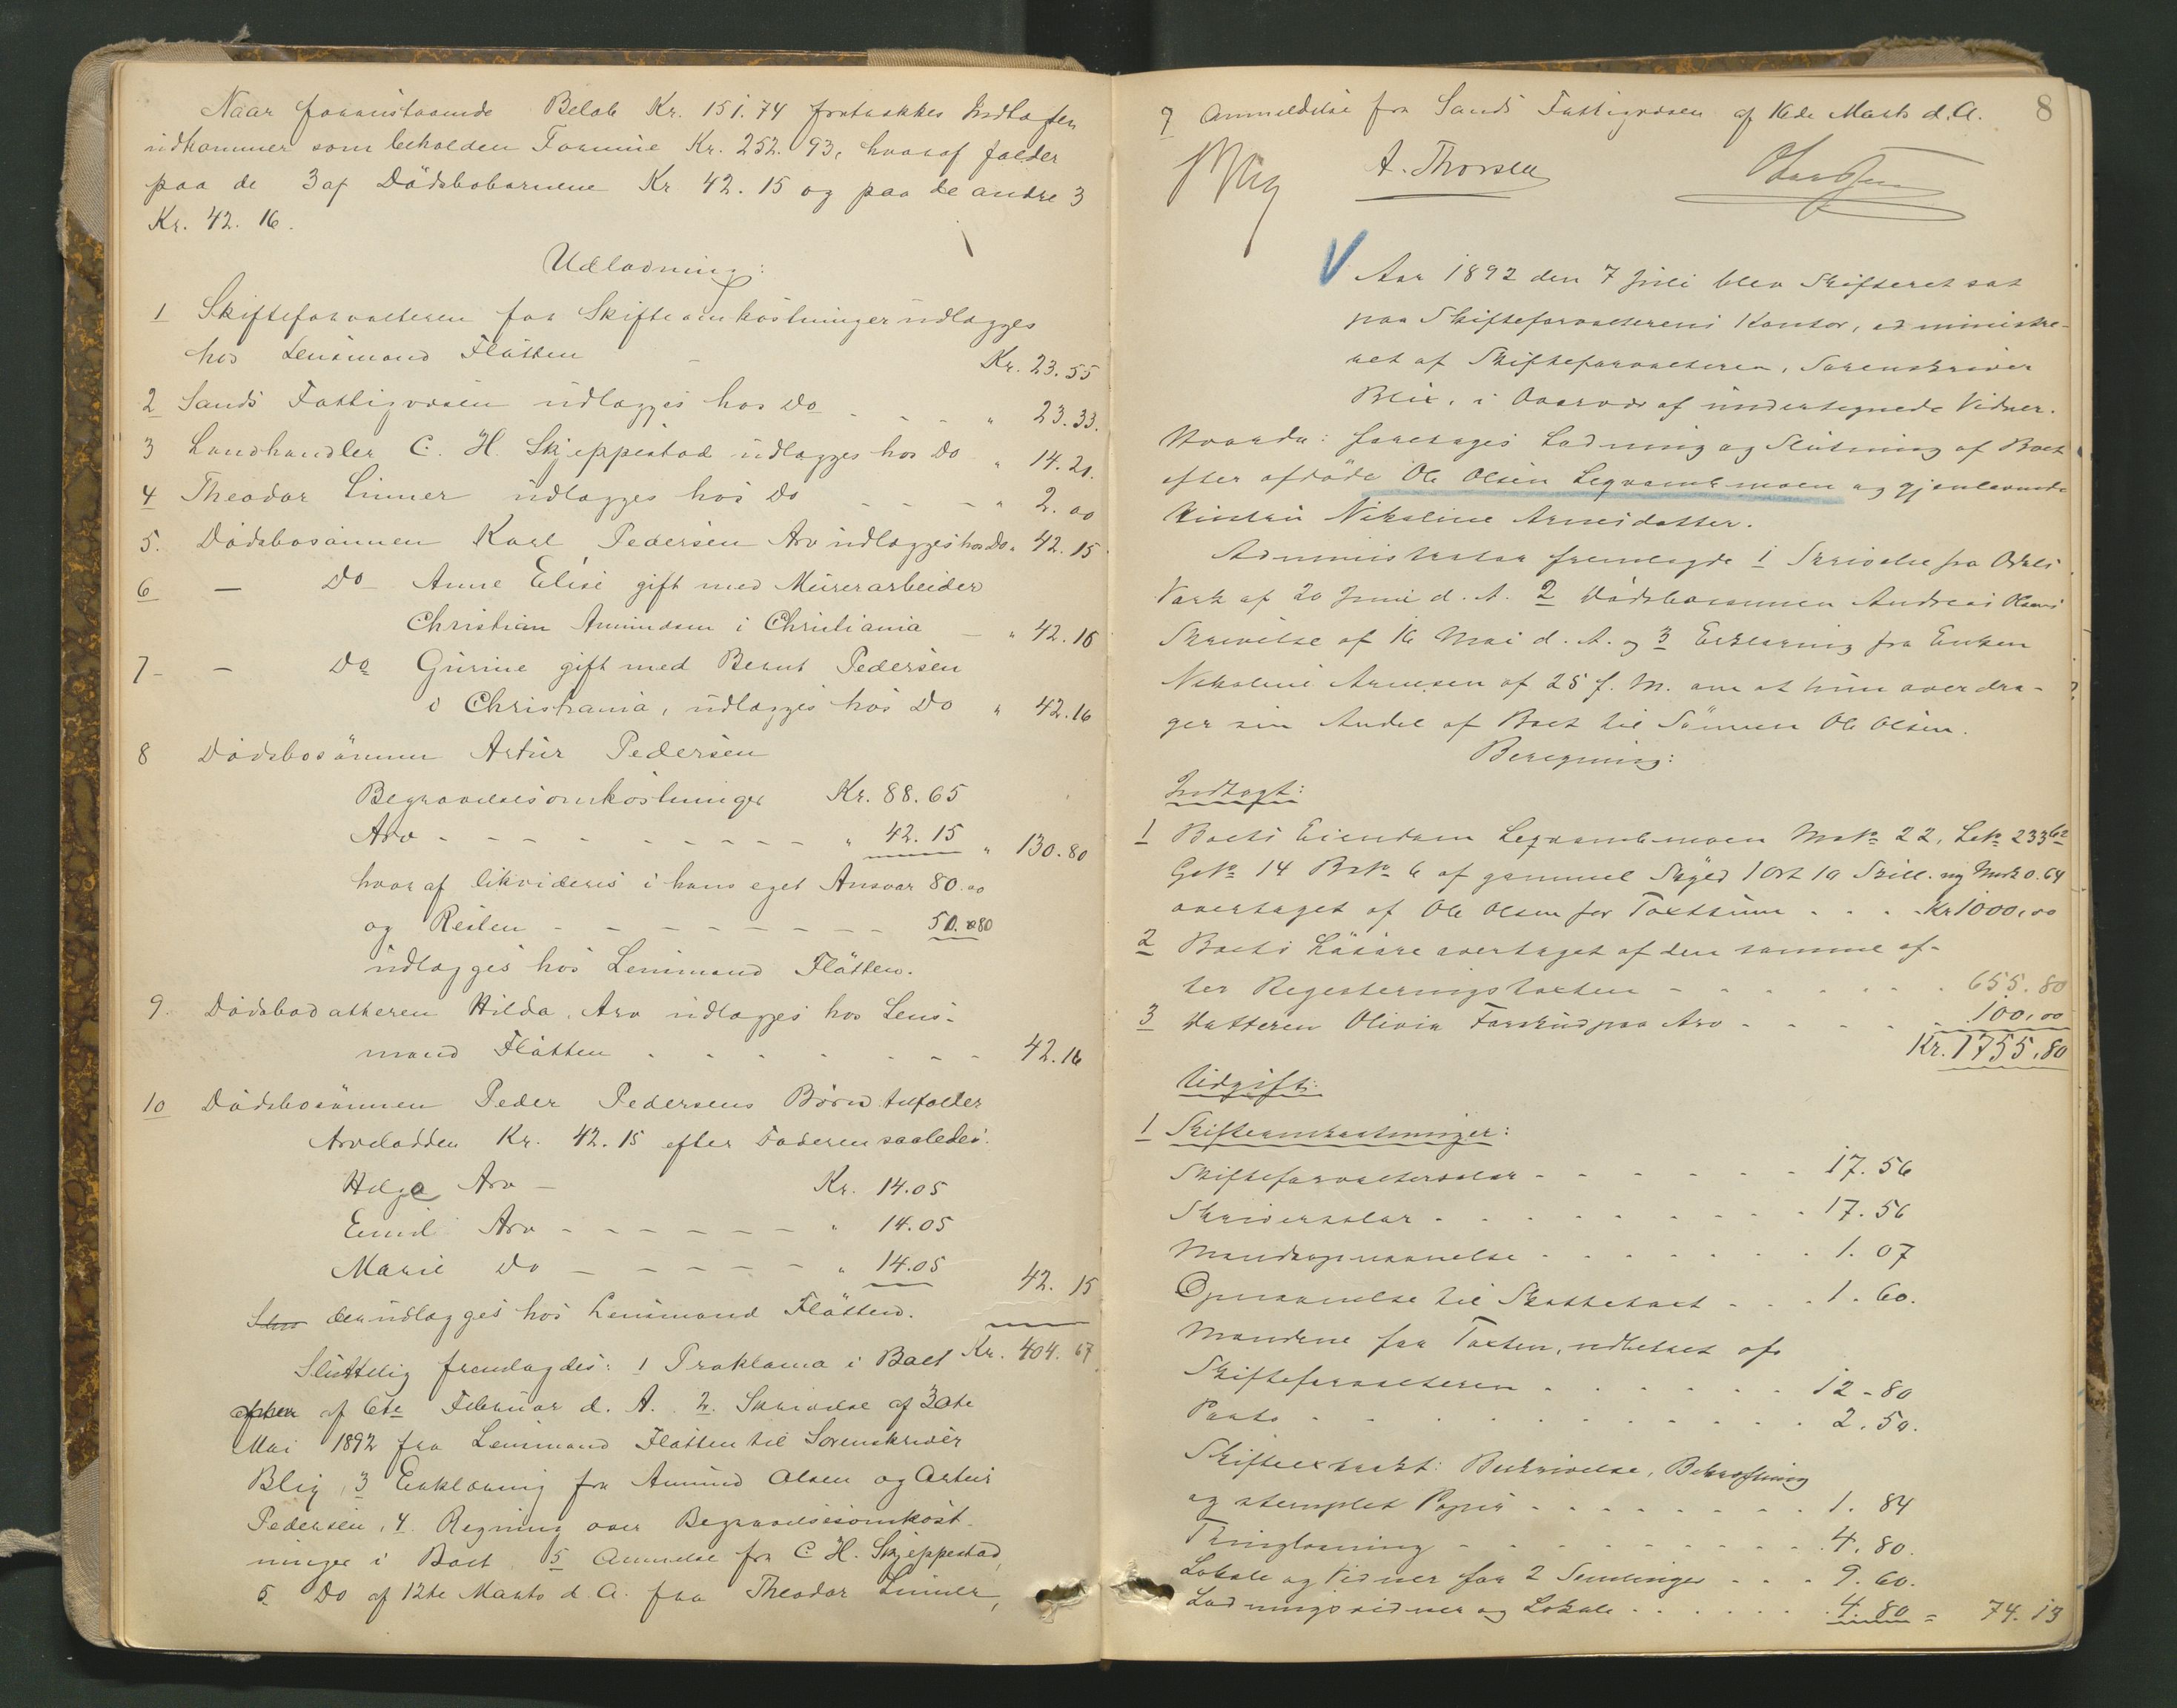 Naar foranstaaende Beløb Kr. 151.74 fratrækkes Indtægten
udkommer som beholden Formue Kr. 252.93, hvoraf falder
paa de 3 af Dödsbobørnene Kr 42.15 og paa de andre 3
Kr. 42.16.
Udlodning:
1 Skifteforvalteren for Skifteomkostninger udlægges
hos Lensmand Flåtten - Kr. 23.55
2 Sands Fattigvæsen udlægges hos Do - - - " 23.33.
3 Landhandler C. H. Skjeppestad udlægges hos Do " 14.20.
4 Theodor Linner udlægges hos Do - - - " 2.00
5. Dödsbosönnen Karl Pedersen Arv udlægges hos Do " 42.15
6 - Do Anne Elise gift med Murerarbeider
Christian Amundsen i Christiania - " 42.16
7 - Do Gurine gift med Bernt Pedersen
i Christiania, udlægges hos Do " 42.16
8 Dödsbosönnen Artur Pedersen
Begravelsesomkostninger Kr. 88.65
Arv - - - - - - - - - " 42.15 " 130.80
hvoraf likvideres i hans eget Ansvar 80.00
og Resten - - - - - - - - 50.80
udlægges hos Lensmand Flåtten.
9. Dödsbodatteren Hilda. Arv udlægges hos Lens-
mand Flåtten - - - - - - - - 42.16
10 Dödsbosönnen Peder Pedersens Börn tilfalder
Arvelodden Kr. 42.15 efter Faderen saaledes:
Helga Arv - Kr. 14.05
Emil Arv - - - - - - - " 14.05
Marie Do - - - - - - " 14.05 42.15
der udlægges hos Lensmand Flåtten.
Kr. 404.67
Sluttelig fremlagdes: 1 Proklama i Boet
af 6te Februar d. A. 2. Skrivelse af 30te
Mai 1892 fra Lensmand Flåtten til Sorenskriver
Blix, 3 Erklæring fra Amund Olsen og Artur
Pedersen, 4. Regning over Begravelsesomkost-
ninger i Boet 5 Anmeldelse fra C H. Skjeppestad,
6. Do af 12te Marts d. A. fra Theodor Linner,
8
7 Anmeldelse fra Sands Fattigvæsen af 16de Marts d. A.
Blix A. Thorsen
V Aar 1892 den 7 Juli blev Skifteret sat
paa Skifteforvalterens Kontor, administre-
ret af Skifteforvalteren, Sorenskriver
Blix, i Overvær af undertegnede Vidner.
Hvorda: foretoges Lodning og Slutning af Boet
efter afdöde Ole Olsen Legvamb moen og gjenlevende
Hustru Nikoline Arnesdatter.
Administrator fremlagde 1 Skrivelse fra Odals
Værk af 20 Juni d. A. 2 Dödsbosönnen Andreas Olsens
Skrivelse af 16 Mai d. A. og 3 Erklæring fra Enken
Nikoline Arnesen af 25 f. M. om at hun overdra-
ger sin Andel af Boet til Sönnen Ole Olsen.
Beregning:
Indtægt:
1 Boets Eiendom Legvamb moen Mno 22, Lno 233 b2
Gno 14 Bno 6 af gammel Skyld 1 Ort 10 Skill. ny Mark 0.64
overtaget af Ole Olsen for Taxtsum . . . Kr 1000,00
2 Boets Lösöre overtaget af den samme ef-
ter Registeringstaxten - - - - - - 655.80
3 Datteren Olivia Forskud paa Arv - - - - - 100,00
Kr. 1755,80
Udgift:
1 Skifteomkostninger:
Skifteforvaltersalar - - - - - - 17.56
Skriversalar - - - - - - - - - 17.56
Mandsopnævnelse - - - - - - - 1.07
Opnævnelse til Skattetaxt - - - 1.60.
Mændene for Taxten, udbetalt af
Skifteforvalteren - - - - - - 12-80
Porto - - - - - - - - - - - 2.50.
Skifteextrakt: Beskrivelse, Bekræftning
og stemplet Papir - - - - - - - - 1.84
Thinglæsning - - - - - - - - - 4.80.
Lokale og Vidner for 2 Samlinger - - - 9.60.
Lodningsvidner og Lokale - - - - - - 4.80 = 74.13